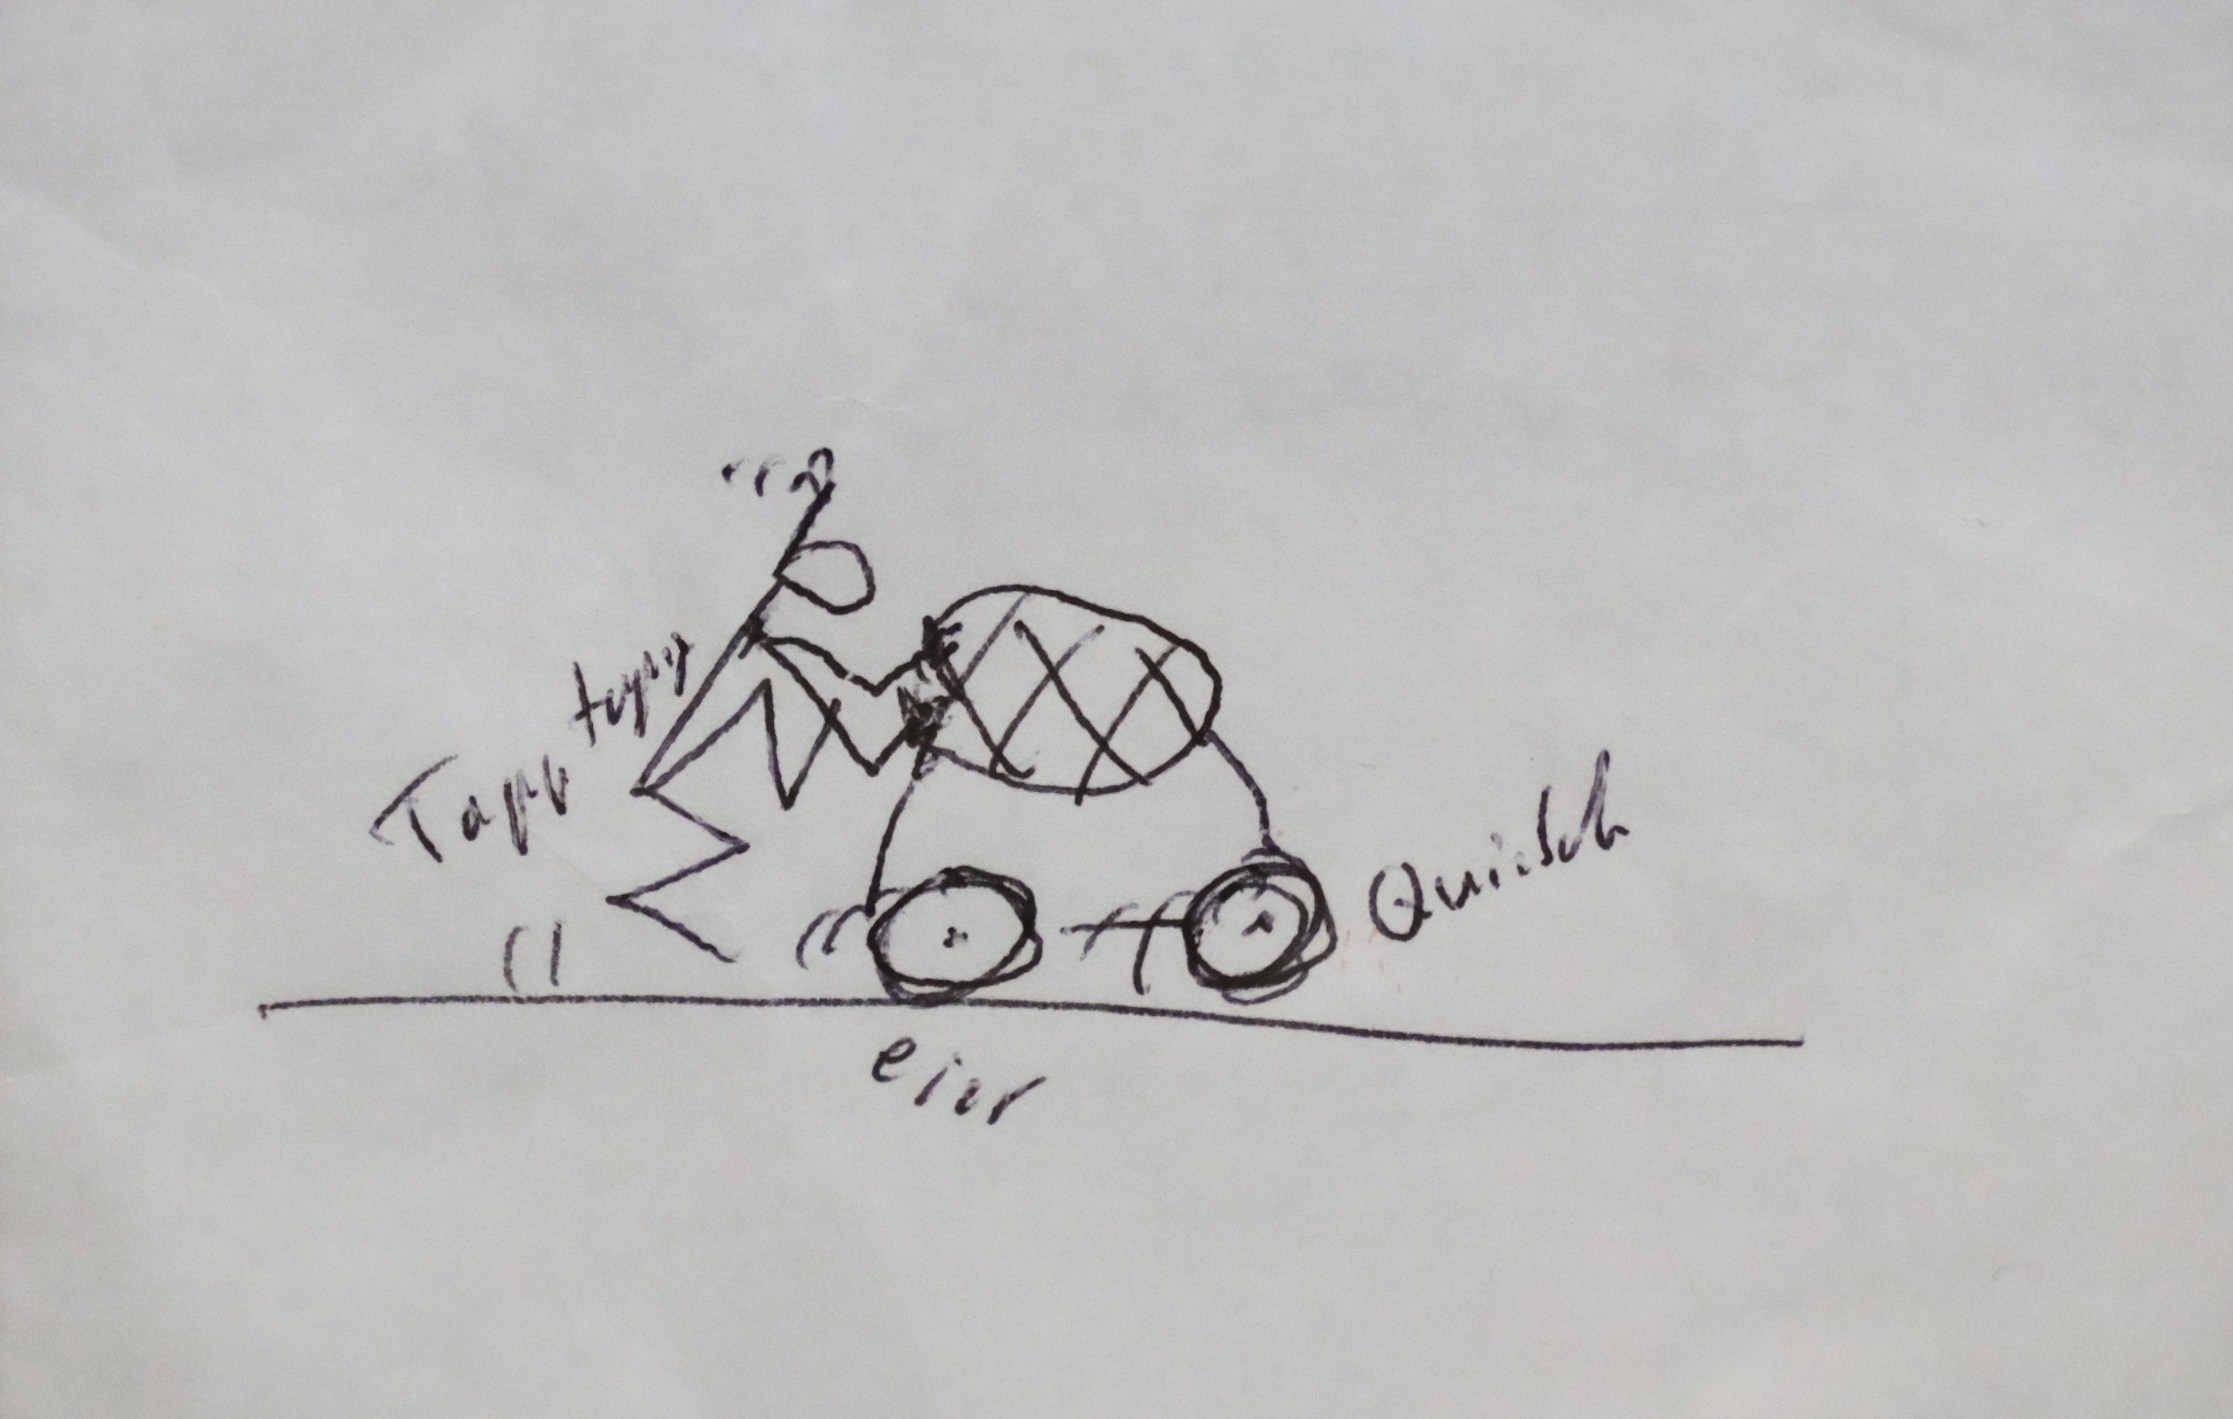 Tapp tapp
Quietsch
eier